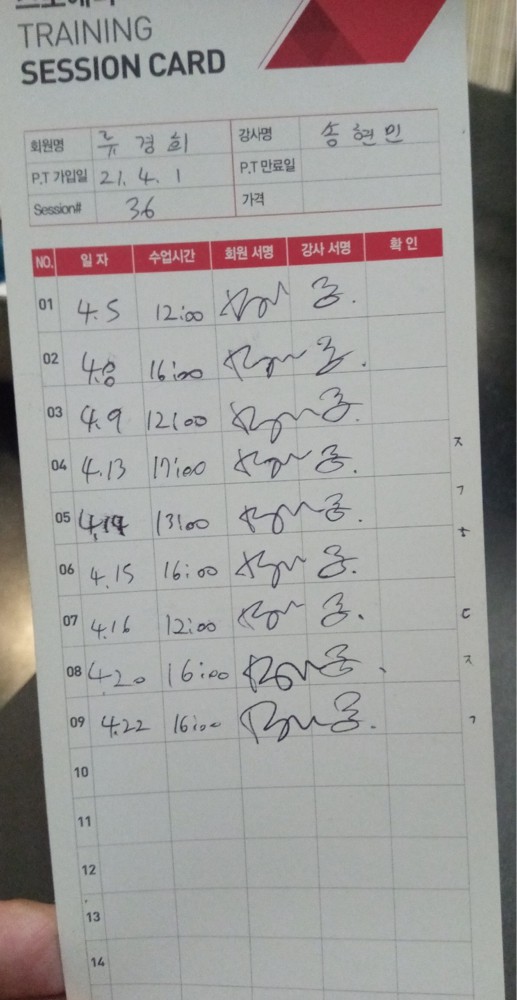 TRAINING
SESSION CARD
회원명 류경희 강사명 송현민
P.T 가입일 21. 4. 1 P.T 만료일
Session# 36 가격
NO. 일 자 수업시간 회원 서명 강사 서명 확 인
01 4.5 12:00 송.
02 4.8 16:00 송.
03 4.9 12:00 송.
04 4.13 17:00 송.
05 4.14 13:00 송.
06 4.15 16:00 송.
07 4.16 12:00 송.
08 4.20 16:00 송.
09 4.22 16:00 송.
10
11
12
13
14